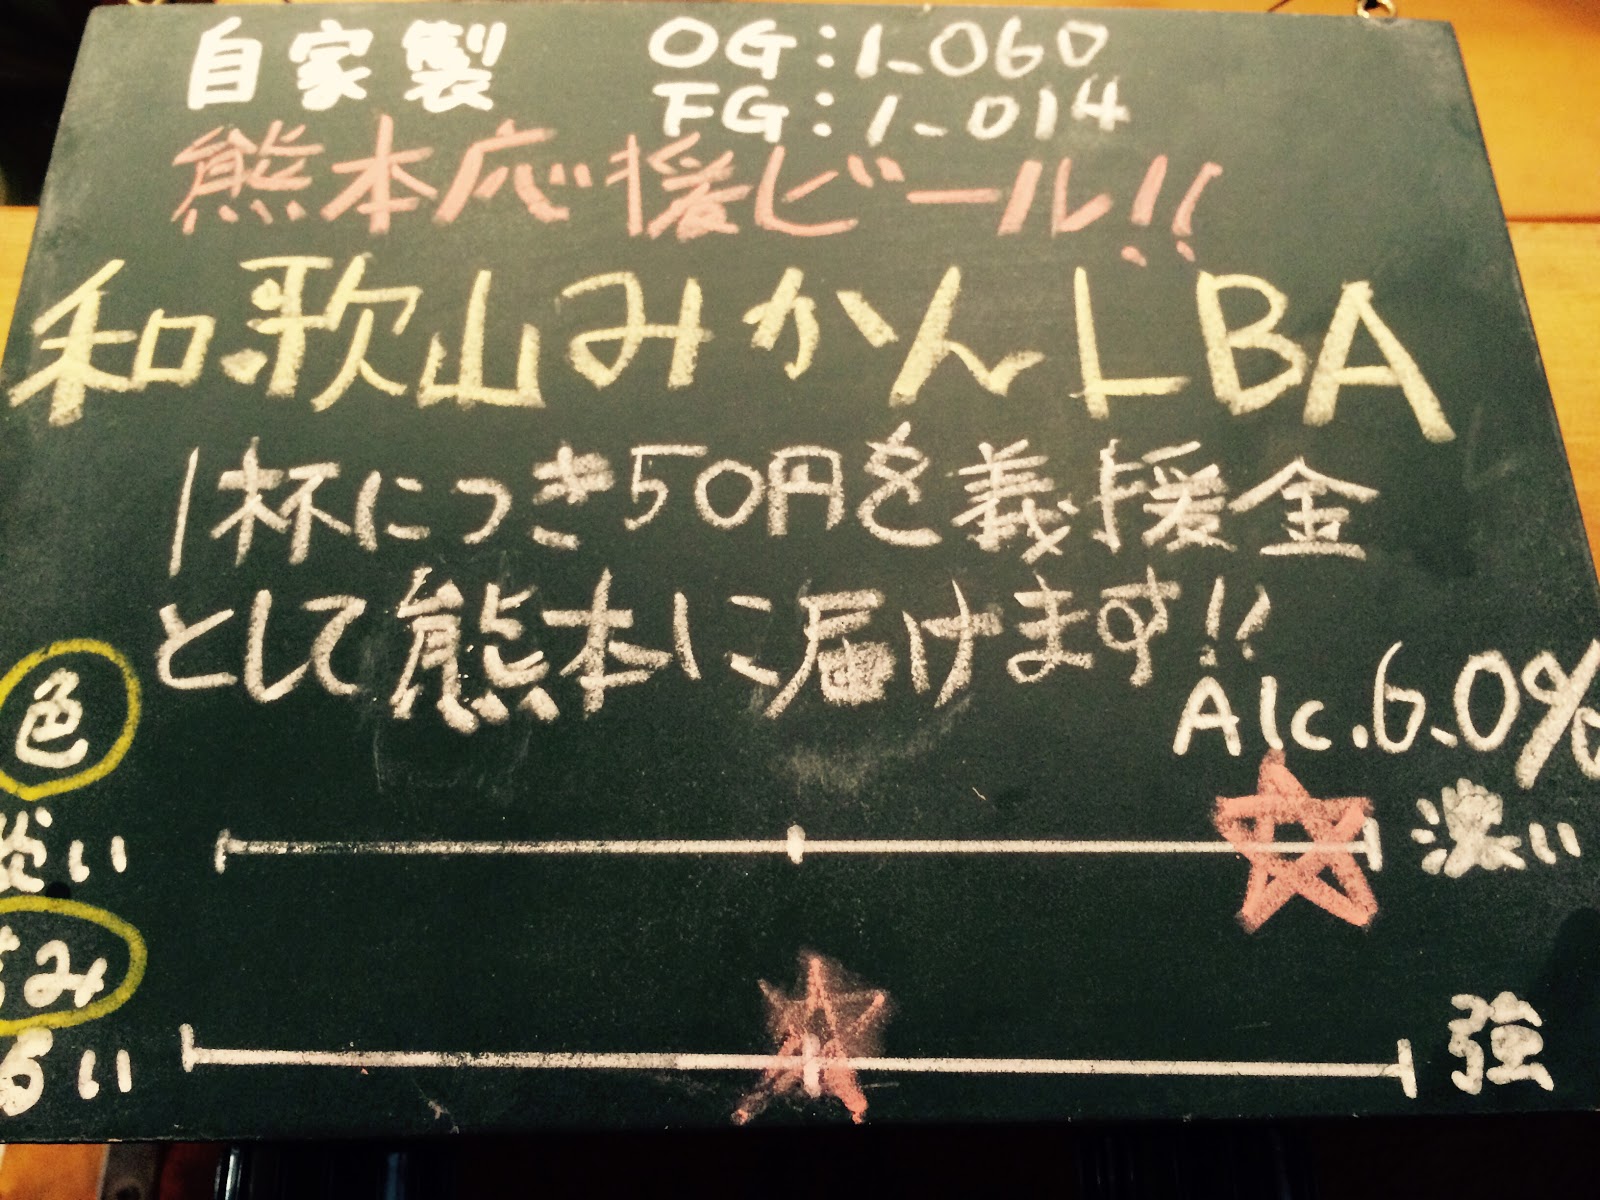 自家製 OG:1.060
FG:1.014
熊本応援ビール!!
和歌山みかんLBA
1杯につき50円を義援金
として熊本に届けます!!
Alc.6.0%
色
淡い 濃い
苦み
弱い 強